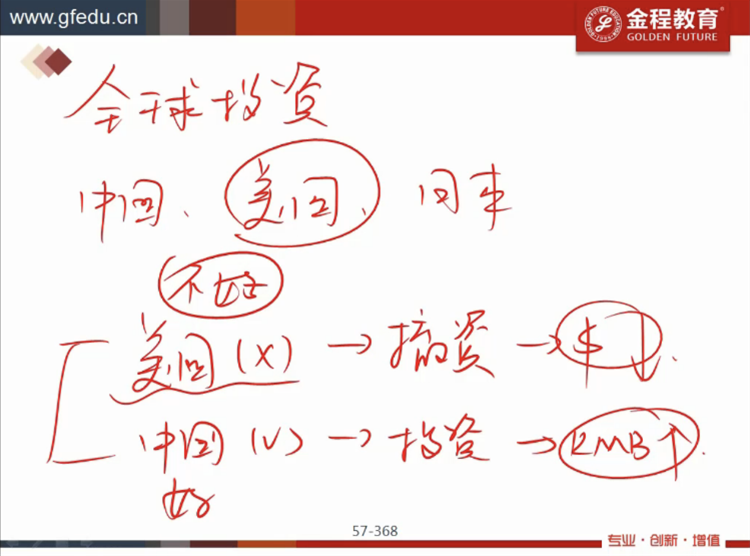 www.gfedu.cn
金程教育
GOLDEN FUTURE
全球投资
中国、美国、日本
不好
美国(X)→撤资→$↓
中国(√)→投资→RMB↑
好
57-368
专业·创新·增值